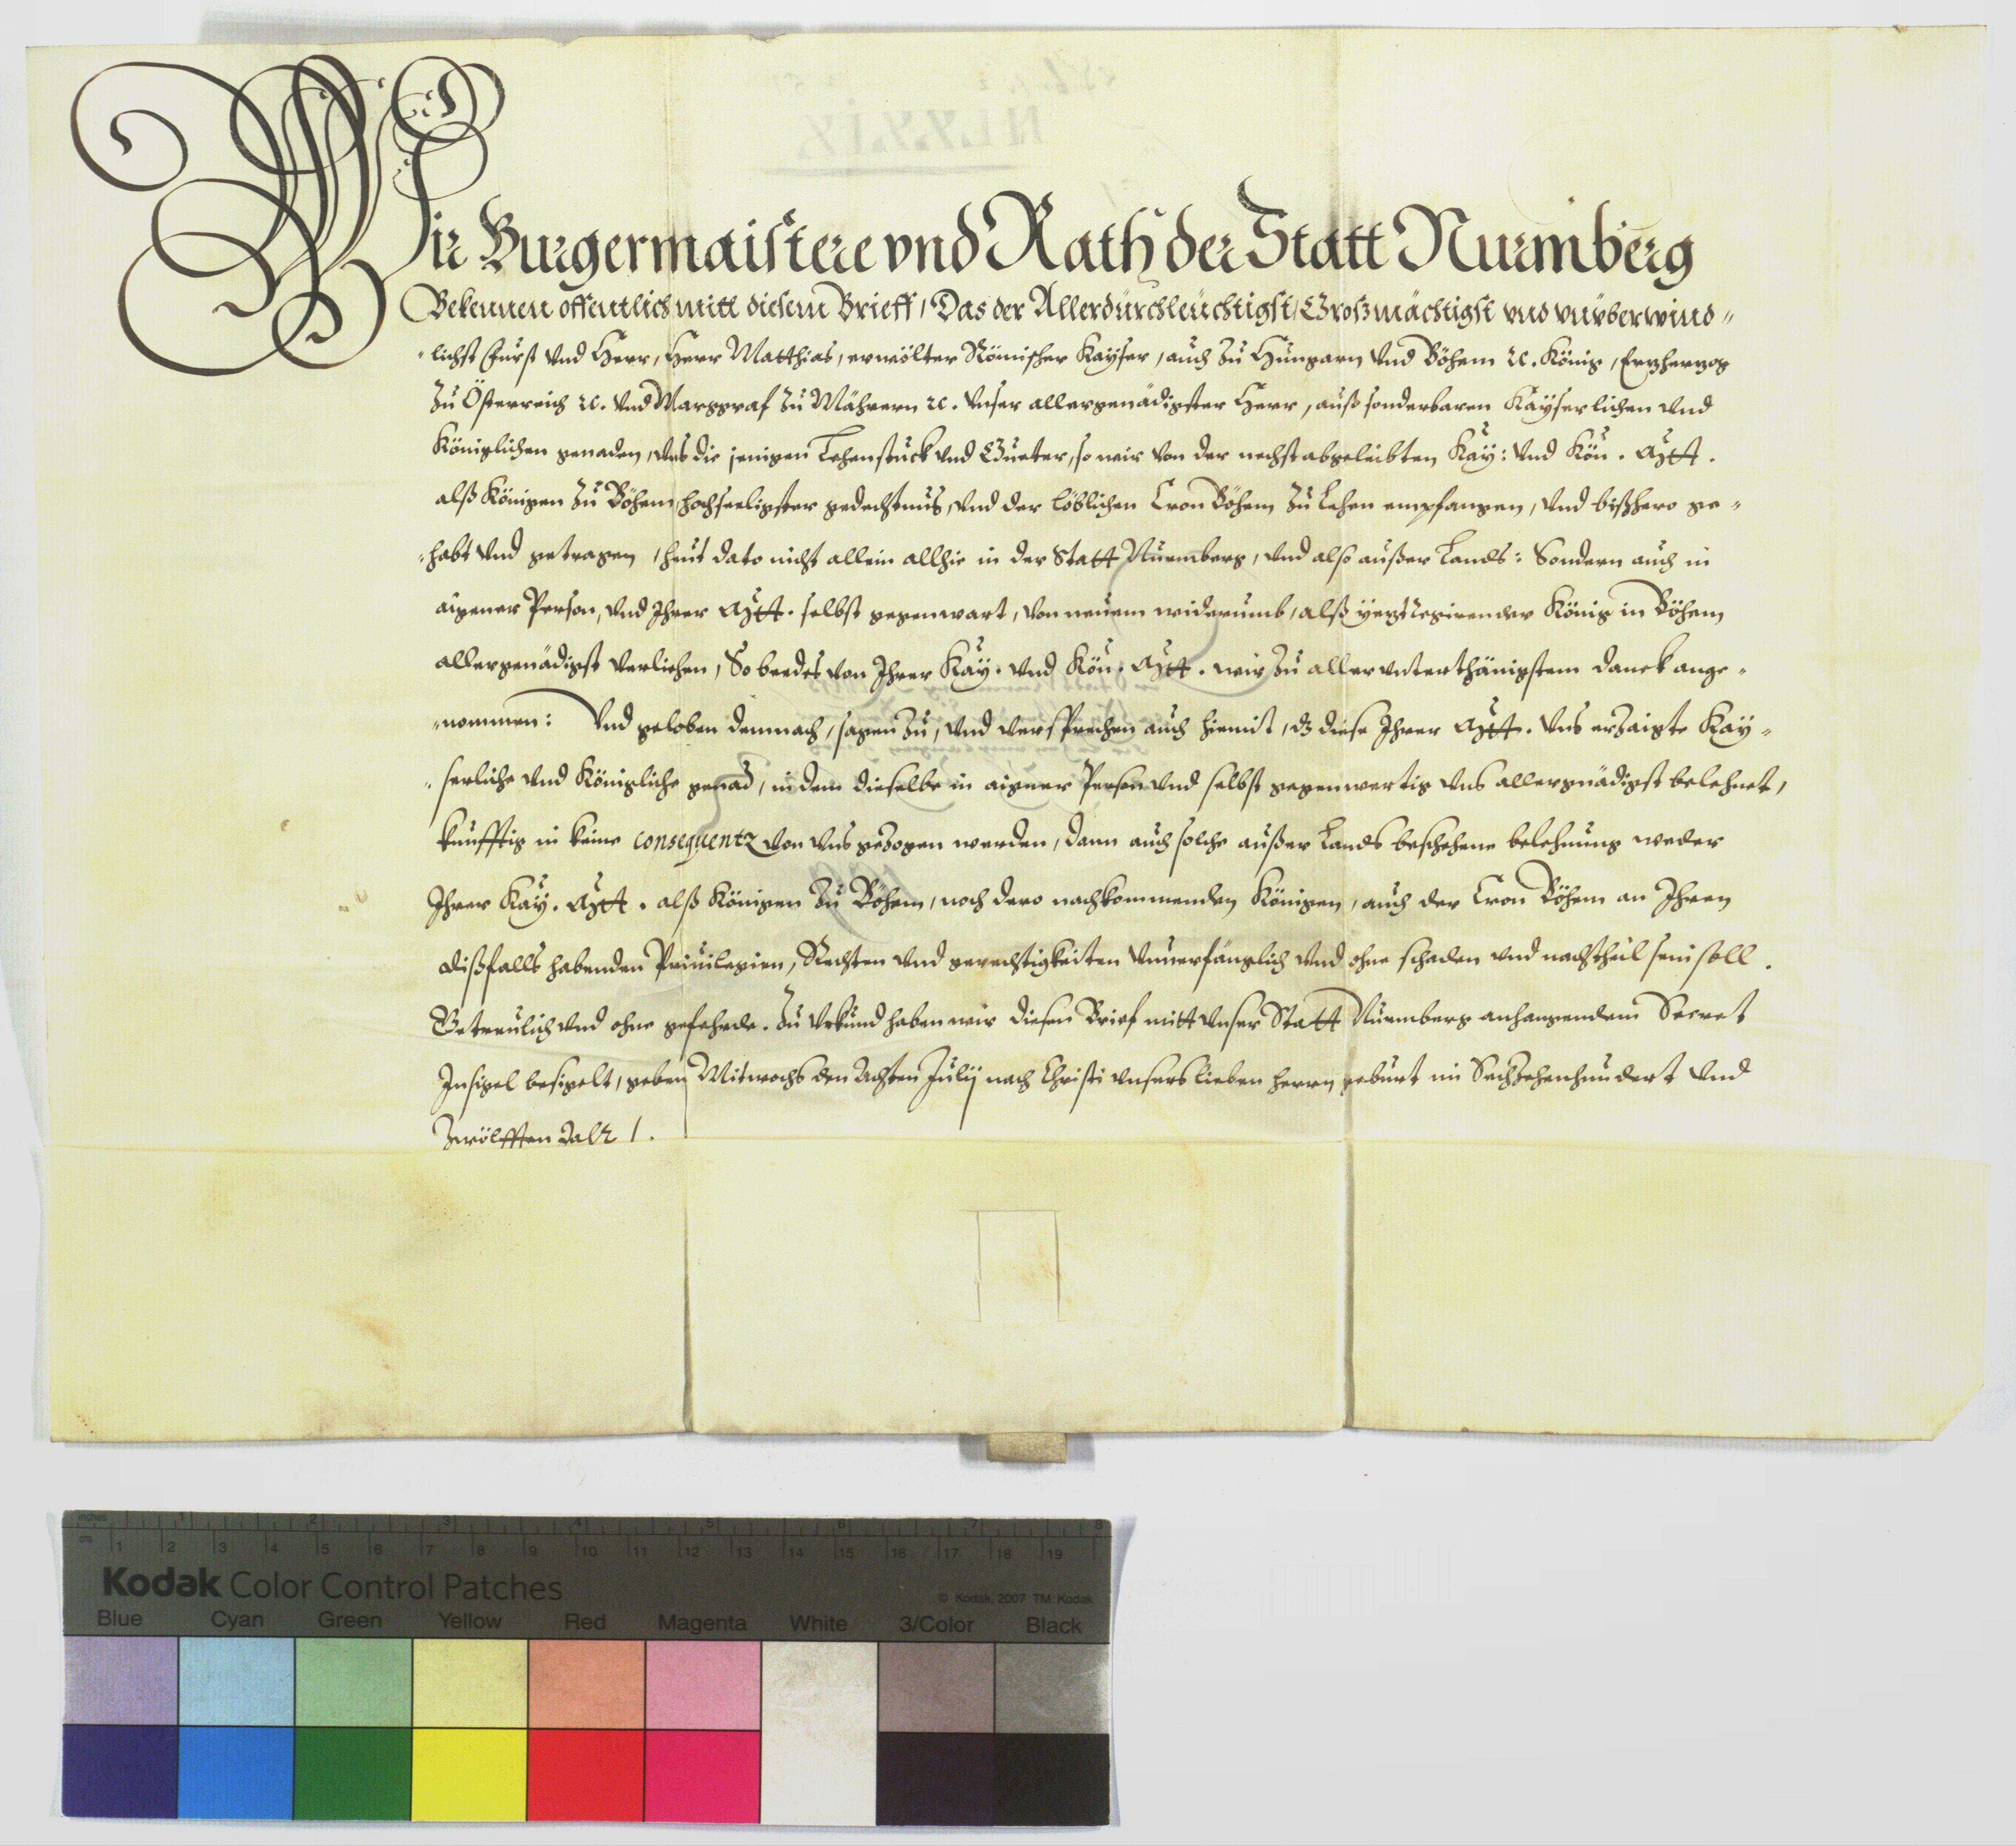 Wir Burgermaistere vnd Rath der Statt Nurmberg
Bekennen offentlich mitt diesem Brieff, Das der Allerdürchleüchtigst, Großmächtigst vnd vnüberwind-
-lichst Fürst vnd Herr, Herr Matthias, erwölter Römischer Kayser, auch zu Hungarn vnd Böhem ꝛc. König, Ertzhertzog
zu Österreich ꝛc. vnd Marggraf zu Mährern ꝛc. vnser allergenädigster Herr, auß sonderbaren Kayserlichen vnd
Königlichen genaden, vns die jenigen Lehenstuck vnd Güeter, so wir von der nechstabgeleibten Kay: vnd Kön. Mtt.
alß Königen zu Böhem, hochseeligster gedechtnus, vnd der löblichen Cron Böhem zu Lehen empfangen, vnd bißhero ge-
-habt vnd getragen, heut dato nicht allein allhie in der Statt Nurmberg, vnd also außer Lands: Sondern auch in
aigener Person, vnd Ihrer Mtt. selbst gegenwart, von neuem widerumb, alß yetzt Regirender König in Böhem
allergenädigst verliehen, So beedes von Ihrer Kay. vnd Kön. Mtt. wir zu aller vnterthänigstem danck ange-
-nommen: Vnd geloben demnach, sagen zu, vnd versprechen auch hiemit, dz diese Ihrer Mtt. vns erzaigte Kay-
-serliche vnd Königliche genad, in dem dieselbe in aigner Person vnd selbst gegenwertig vns allergnädigst belehnet,
kunfftig in keine consequentz von vns gezogen werden, dann auch solche außer Lands beschehene belehnung weder
Ihrer Kay. Mtt. alß Königen zu Böhem, noch dero nachkommenden Königen, auch der Cron Böhem an Ihren
dißfalls habenden Priuilegien, Rechten vnd gerechtigkeiten vnuerfänglich vnd ohne schaden vnd nachtheil sein soll.
Getreulich vnd ohne gefehrde. Zu Vrkund haben wir diesen Brief mitt vnser Statt Nurmberg anhangendem Secret
Insigel besigelt, geben Mitwochs den Achten Julij nach Christi vnsers lieben herrn geburt im Sechzehenhundert vnd
Zwölfften Jahr.
inches 1 2 3 4 5 6 7 8
cm 1 2 3 4 5 6 7 8 9 10 11 12 13 14 15 16 17 18 19
Kodak Color Control Patches
© Kodak, 2007 TM: Kodak
Blue Cyan Green Yellow Red Magenta White 3/Color Black